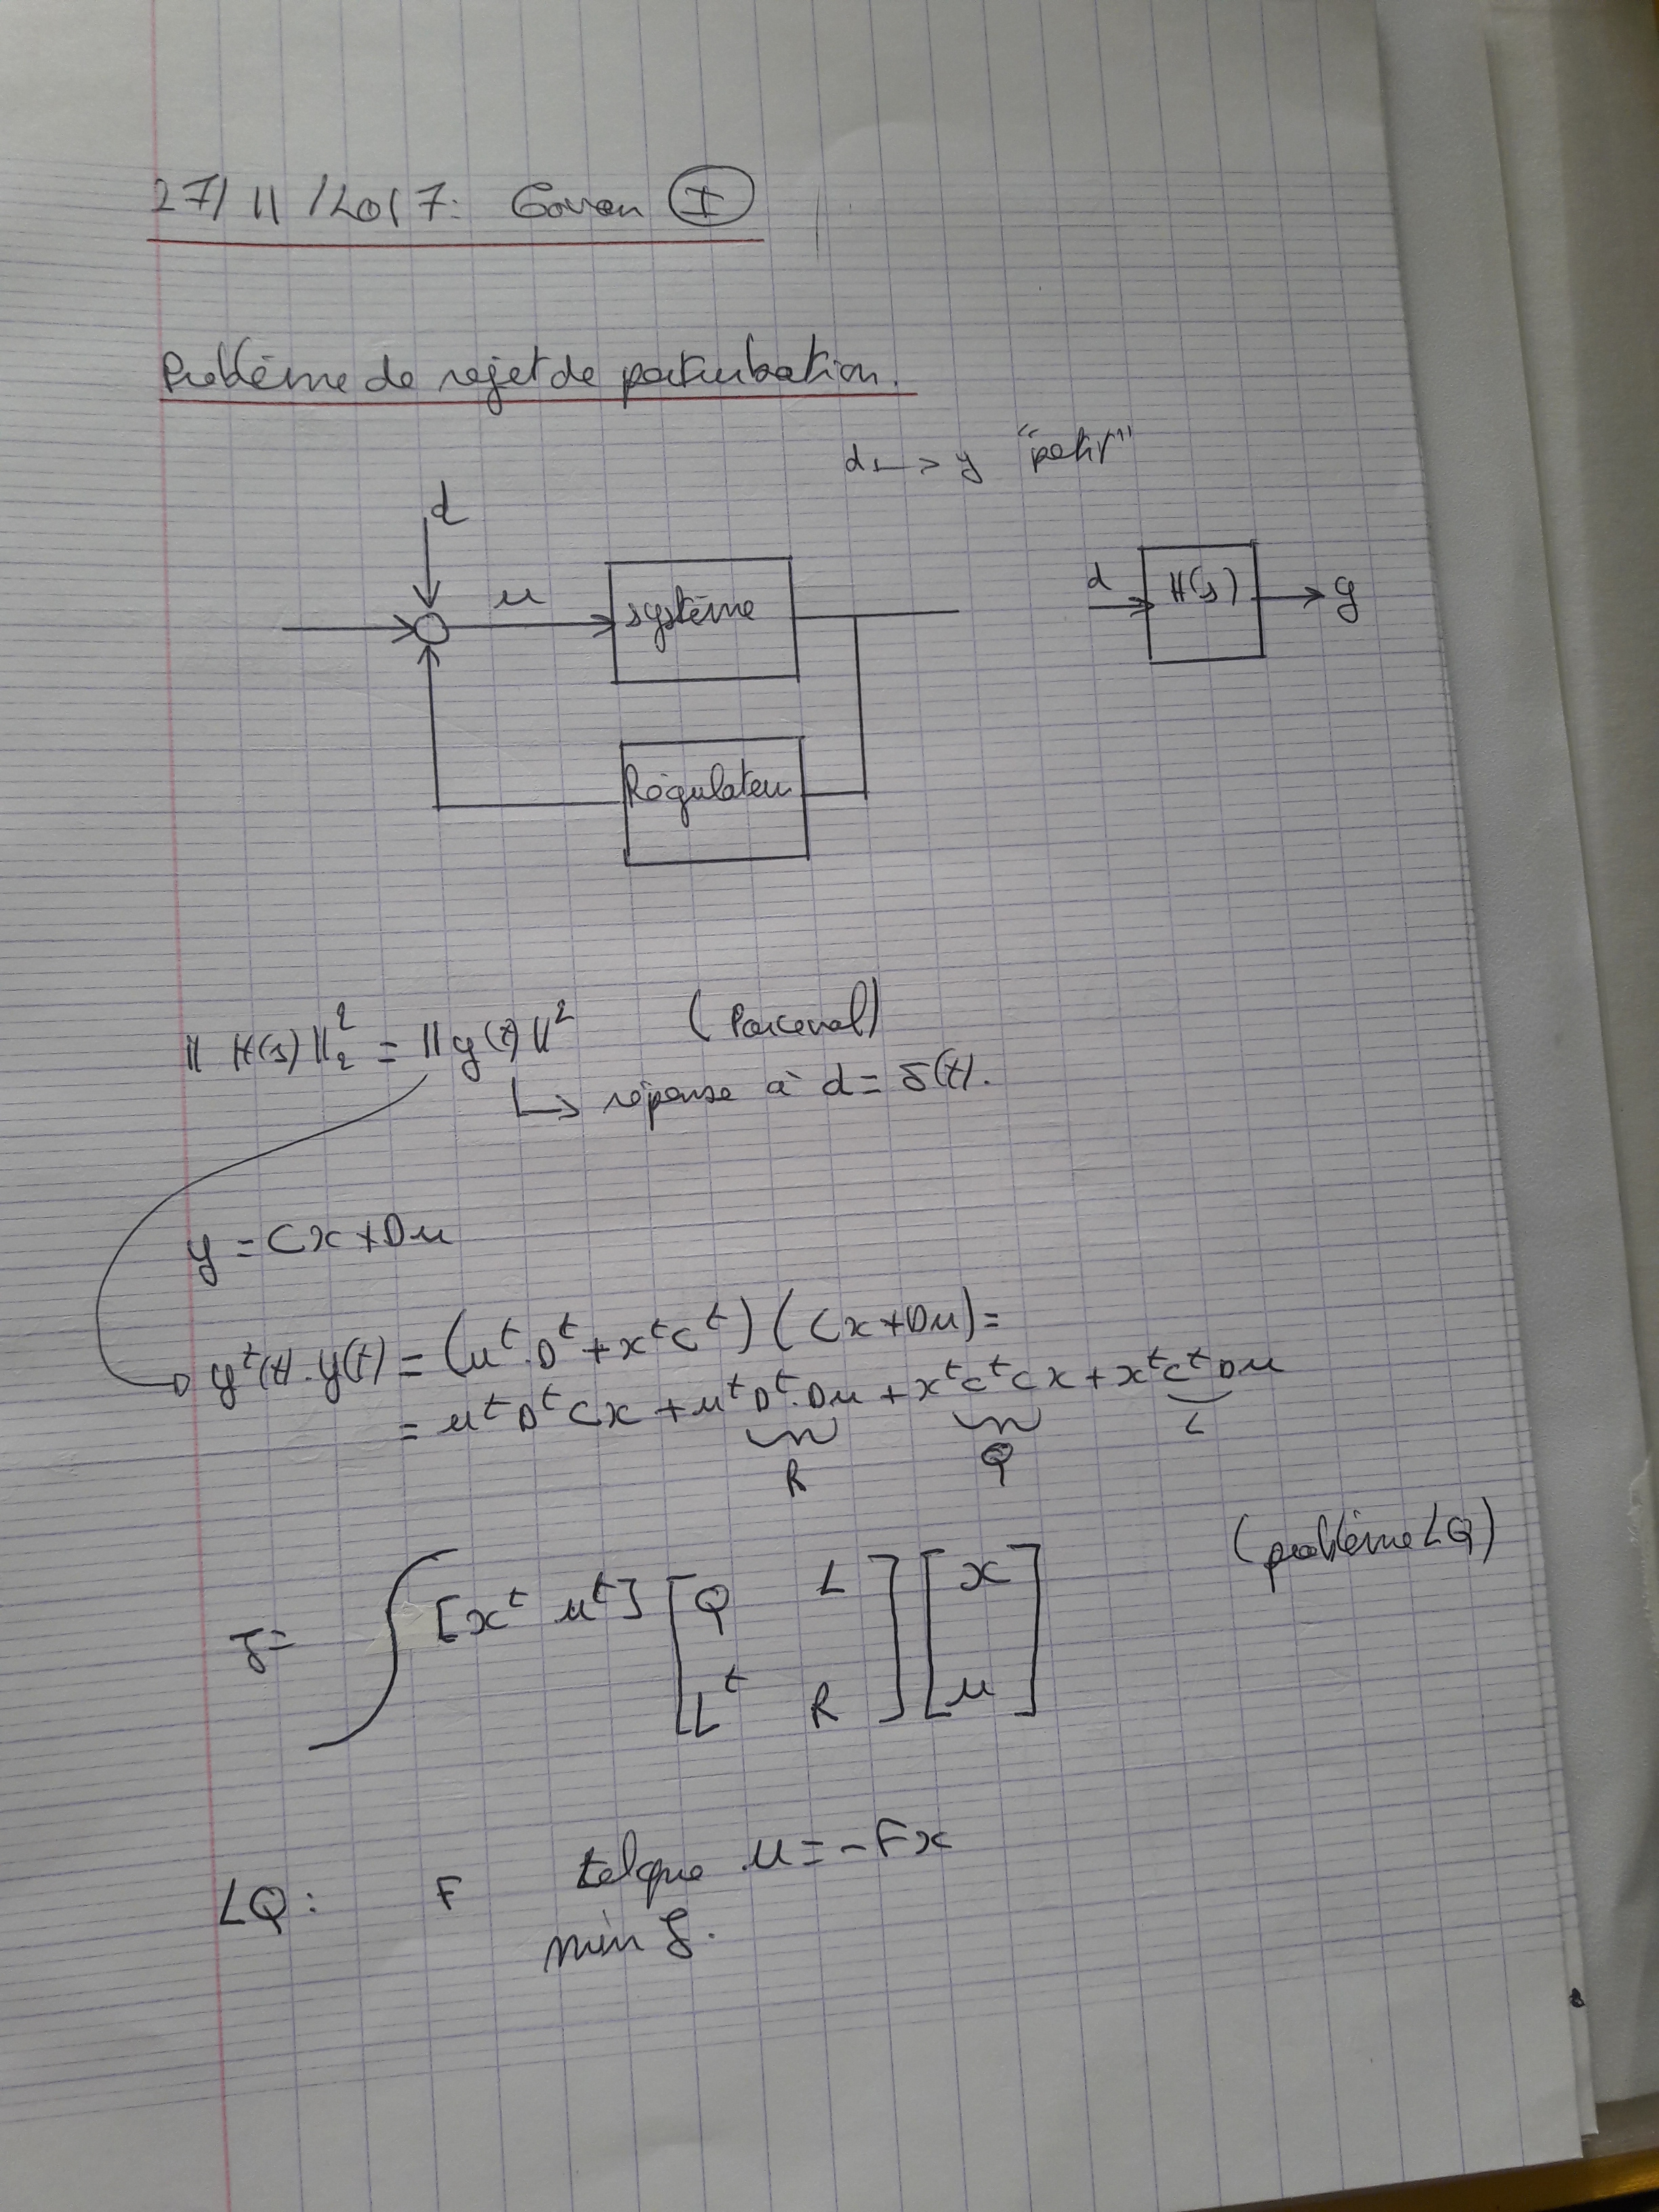 27/11/2017: (I)
Problème de rejet de perturbation.
d ↦ y "petit"
d
u
système
d
H(s)
y
Régulateur
‖H(s)‖₂² = ‖y(t)‖² (Parceval)
↳ réponse à d = δ(t).
y = Cx + Du
yᵗ(t).y(t) = (uᵗ.Dᵗ + xᵗCᵗ)(Cx + Du) =
= uᵗDᵗCx + uᵗDᵗ.Du + xᵗCᵗCx + xᵗCᵗDu
R Q L
(problème LQ)
J = ∫ [xᵗ uᵗ] [Q L
Lᵗ R] [x
u]
LQ: F tel que u = -Fx
min J.